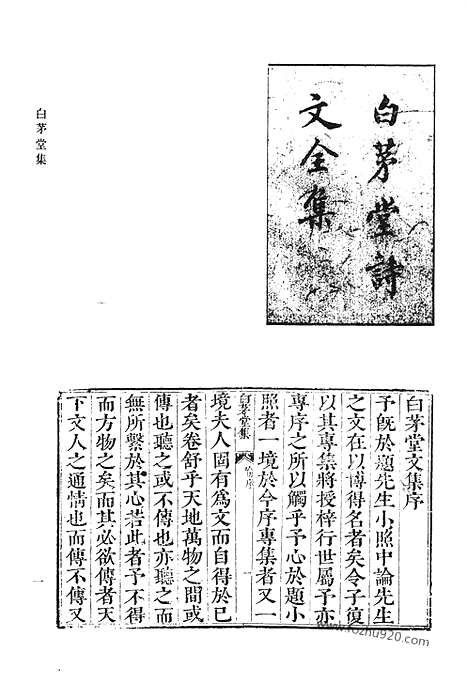 白茅堂詩
文全集
白茅堂集
白茅堂文集序
予旣於題先生小照中論先生
之文在以博得名者矣令子復
以其專集將授梓行世屬予亦
專序之所以觸乎予心於題小
照者一境於今序專集者又一
白茅堂集
序
境夫人固有爲文而自得於已
者矣卷舒乎天地萬物之間或
傳也聽之或不傳也亦聽之而
無所繫於其心若此者予不得
而方物之矣而其必欲傳者天
下文人之通情也而傳不傳又
一